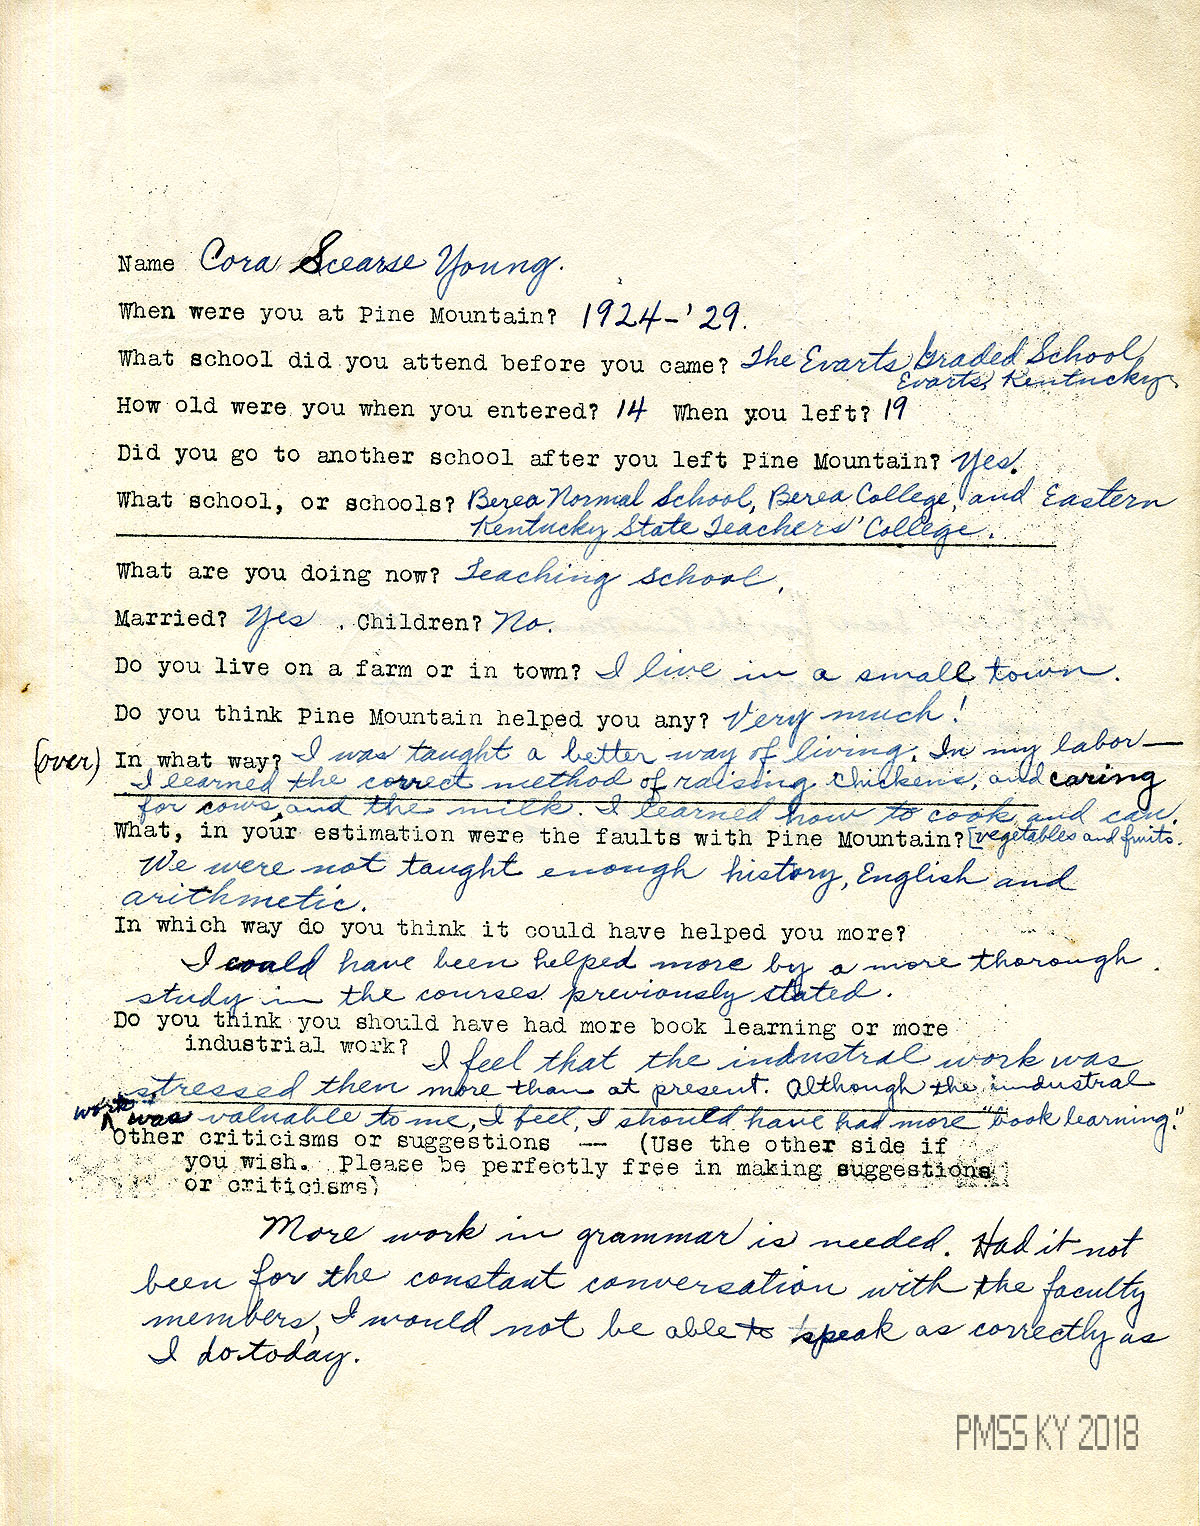 Name Cora Scearse Young.
When were you at Pine Mountain? 1924-'29.
What school did you attend before you came? The Evarts Graded School,
Evarts, Kentucky.
How old were you when you entered? 14 When you left? 19
Did you go to another school after you left Pine Mountain? Yes.
What school, or schools? Berea Normal School, Berea College, and Eastern
Kentucky State Teachers' College.
What are you doing now? Teaching school.
Married? Yes . Children? No.
Do you live on a farm or in town? I live in a small town.
Do you think Pine Mountain helped you any? Very much!
(over) In what way? I was taught a better way of living. In my labor—
I learned the correct method of raising chickens, and caring
for cows, and the milk. I learned how to cook and can.
What, in your estimation were the faults with Pine Mountain? [vegetables and fruits.
We were not taught enough history, English and
arithmetic.
In which way do you think it could have helped you more?
I could have been helped more by a more thorough
study in the courses previously stated.
Do you think you should have had more book learning or more
industrial work? I feel that the industral work was
stressed then more than at present. Although the industral
work was valuable to me, I feel, I should have had more "book learning."
Other criticisms or suggestions -- (Use the other side if
you wish. Please be perfectly free in making suggestions
or criticisms)
More work in grammar is needed. Had it not
been for the constant conversation with the faculty
members, I would not be able to speak as correctly as
I do today.
PMSS KY 2018